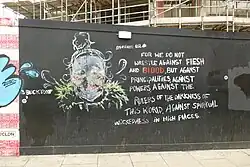 EPHESIANS 6:12
FOR WE DO NOT
WRESTLE AGAINST FLESH
AND BLOOD, BUT AGAINST
PRINCIPALITIES AGAINST
POWERS AGAINST THE
RULERS OF THE DARKNESS OF
THIS WORLD, AGAINST SPIRITUAL
WICKEDNESS IN HIGH PLACES